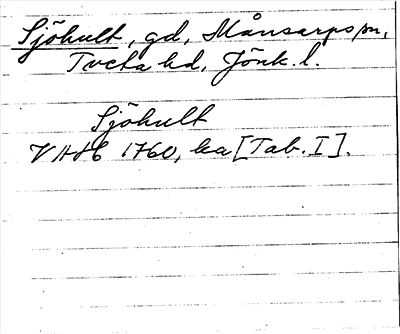 Sjöhult, gd, Månsarps sn,
Tveta hd, Jönk. l.
Sjöhult
VHAH 1760, ka [Tab. I].